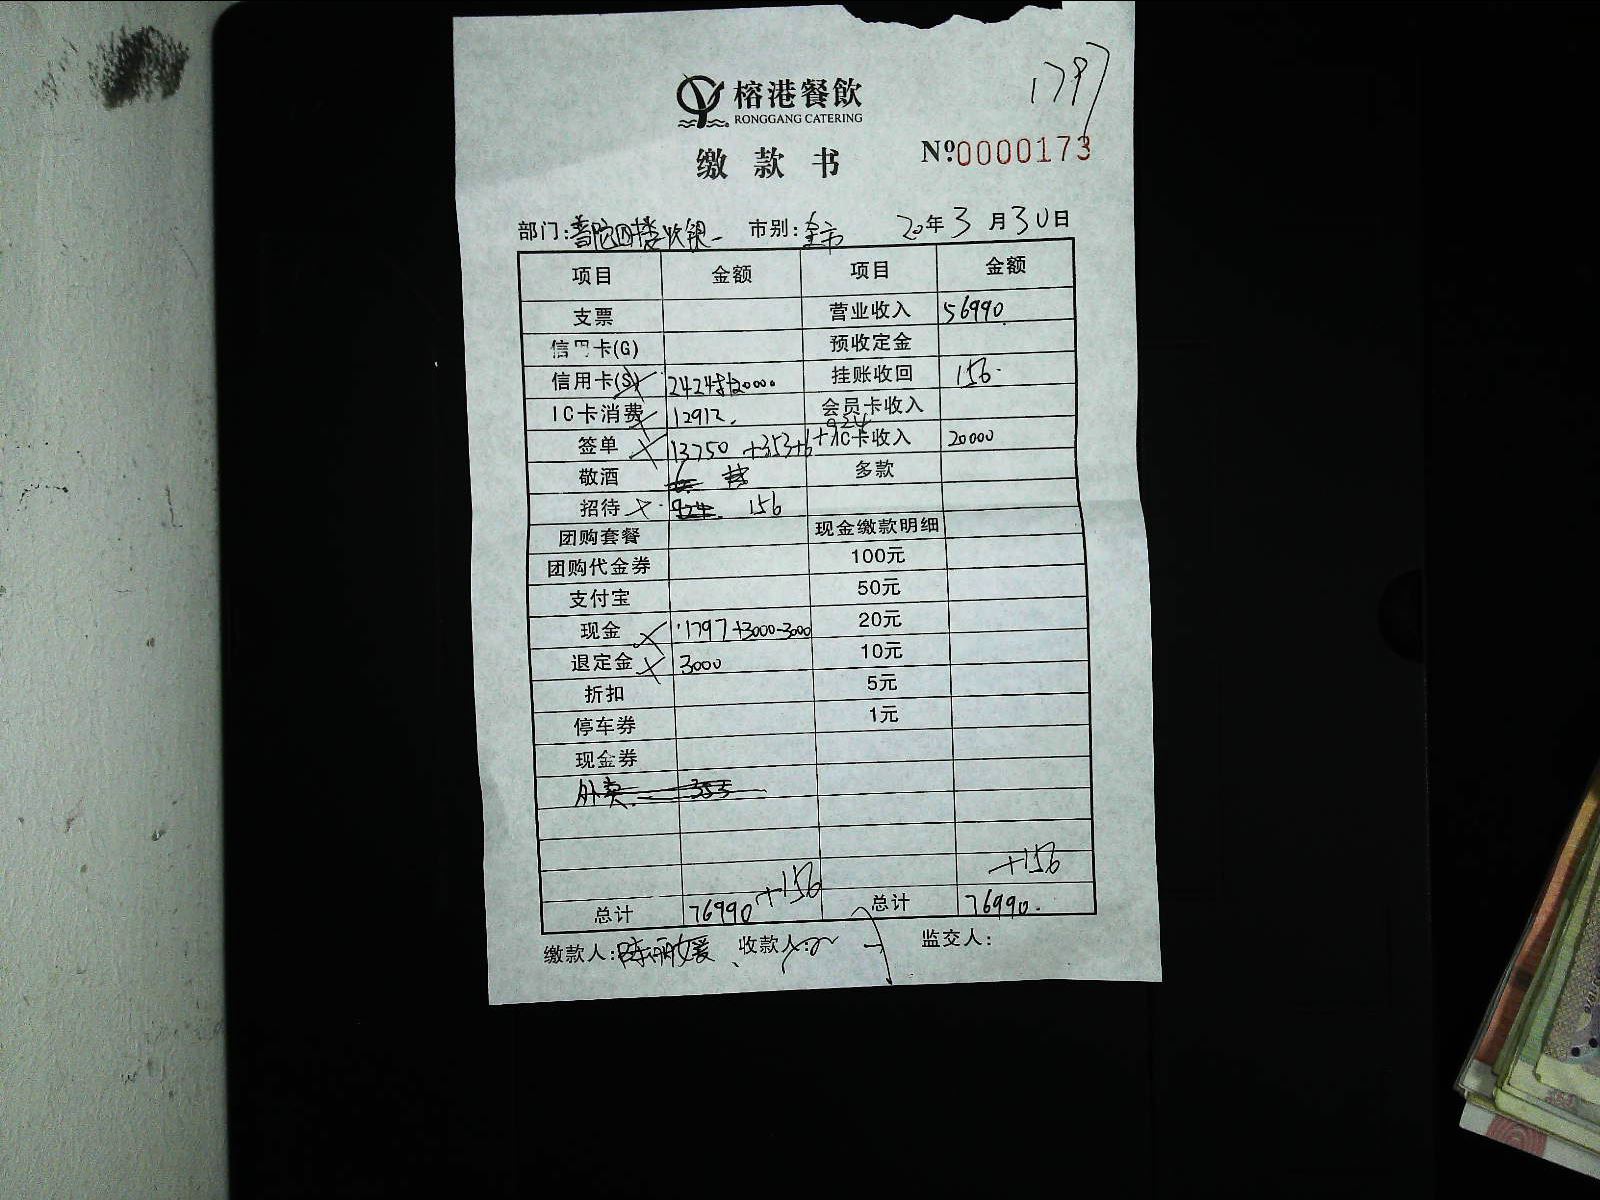 1797
榕港餐飲
RONGGANG CATERING
缴款书
Nº0000173
部门:普陀四楼收银 市别:全市 20年3月30日
项目 金额 项目 金额
支票 营业收入 56990
信用卡(G) 预收定金
信用卡(S) 24248+20000 挂账收回 156
IC卡消费 12912 会员卡收入
签单 13750+353+6+924 IC卡收入 20000
敬酒 多款
招待 924 156
团购套餐 现金缴款明细
团购代金券 100元
支付宝 50元
现金 1797+3000-3000 20元
退定金 3000 10元
折扣 5元
停车券 1元
现金券
外卖 353
+156 +156
总计 76990 总计 76990
缴款人:陈丽媛 收款人: 监交人: